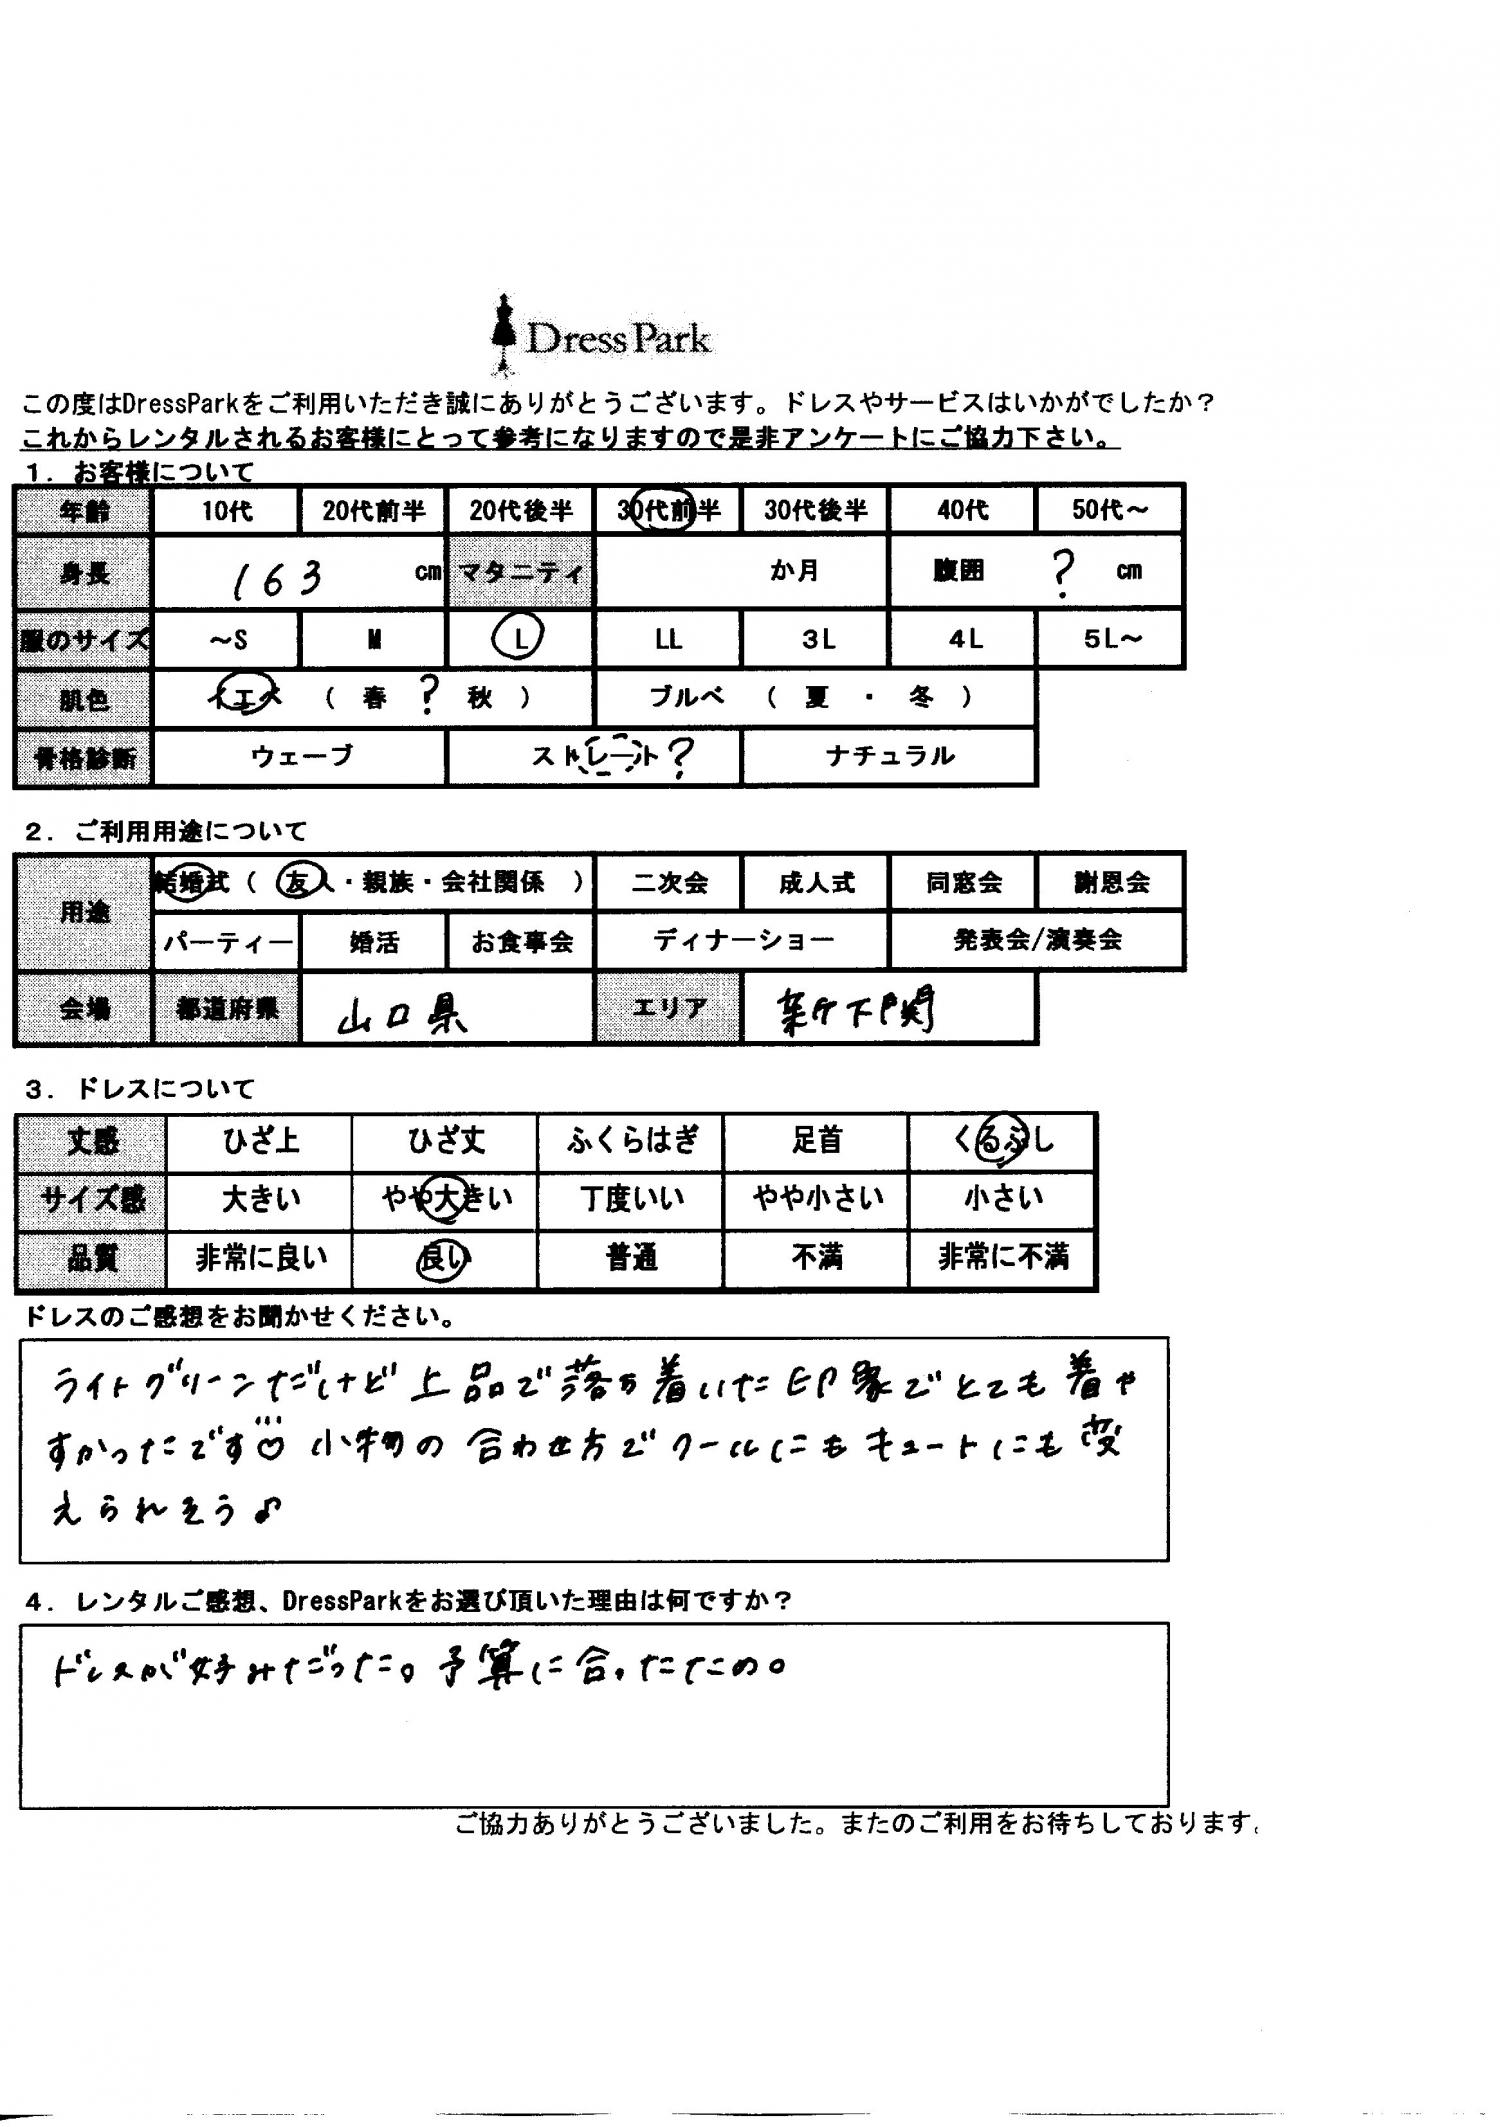 DressPark
この度はDressParkをご利用いただき誠にありがとうございます。ドレスやサービスはいかがでしたか？
これからレンタルされるお客様にとって参考になりますので是非アンケートにご協力下さい。
1．お客様について
年齢 10代 20代前半 20代後半 30代前半 30代後半 40代 50代～
身長 163 cm マタニティ か月 腹囲 ? cm
服のサイズ ～S M L LL 3L 4L 5L～
肌色 イエベ （ 春 ? 秋 ） ブルベ （ 夏 ・ 冬 ）
骨格診断 ウェーブ ストレート? ナチュラル
2．ご利用用途について
用途 結婚式（ 友人・親族・会社関係 ） 二次会 成人式 同窓会 謝恩会
パーティー 婚活 お食事会 ディナーショー 発表会/演奏会
会場 都道府県 山口県 エリア 新下関
3．ドレスについて
丈感 ひざ上 ひざ丈 ふくらはぎ 足首 くるぶし
サイズ感 大きい やや大きい 丁度いい やや小さい 小さい
品質 非常に良い 良い 普通 不満 非常に不満
ドレスのご感想をお聞かせください。
ライトグリーンだけど上品で落ち着いた印象でとても着や
すかったです♡ 小物の合わせ方でクールにもキュートにも変
えられそう♪
4．レンタルご感想、DressParkをお選び頂いた理由は何ですか？
ドレスが好みだった。予算に合ったため。
ご協力ありがとうございました。またのご利用をお待ちしております。